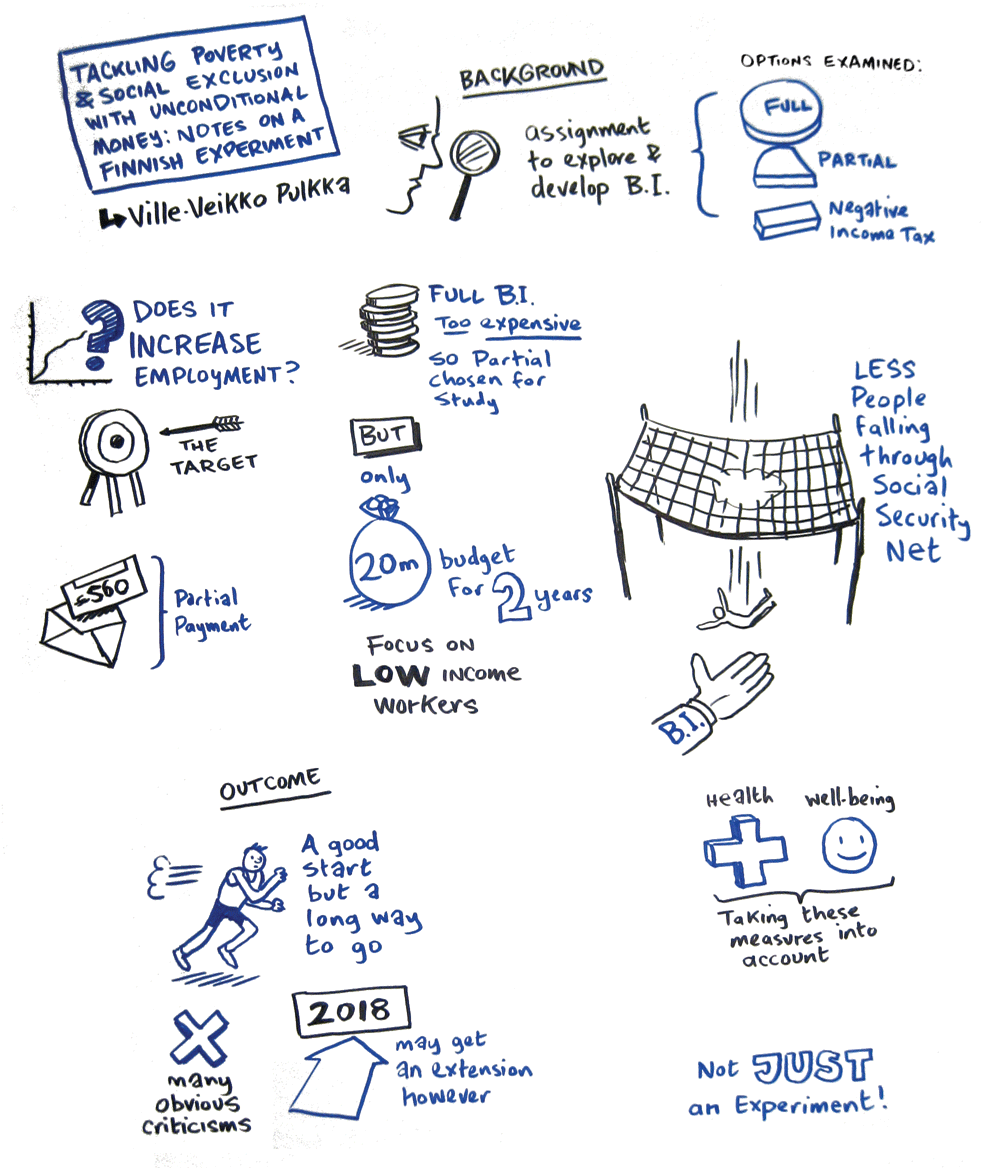 TACKLING POVERTY
& SOCIAL EXCLUSION
WITH UNCONDITIONAL
MONEY: NOTES ON A
FINNISH EXPERIMENT
Ville-Veikko Pulkka
BACKGROUND
assignment
to explore &
develop B.I.
OPTIONS EXAMINED:
FULL
PARTIAL
Negative
Income Tax
DOES IT
INCREASE
EMPLOYMENT?
THE
TARGET
£560
Partial
Payment
FULL B.I.
Too expensive
so Partial
chosen for
Study
BUT
only
20m budget
for 2 years
FOCUS ON
LOW INCOME
WORKERS
LESS
People
falling
through
Social
Security
Net
B.I.
Health
well-being
Taking these
measures into
account
OUTCOME
A good
start
but a
long way
to go
many
obvious
criticisms
2018
may get
an extension
however
Not JUST
an Experiment!